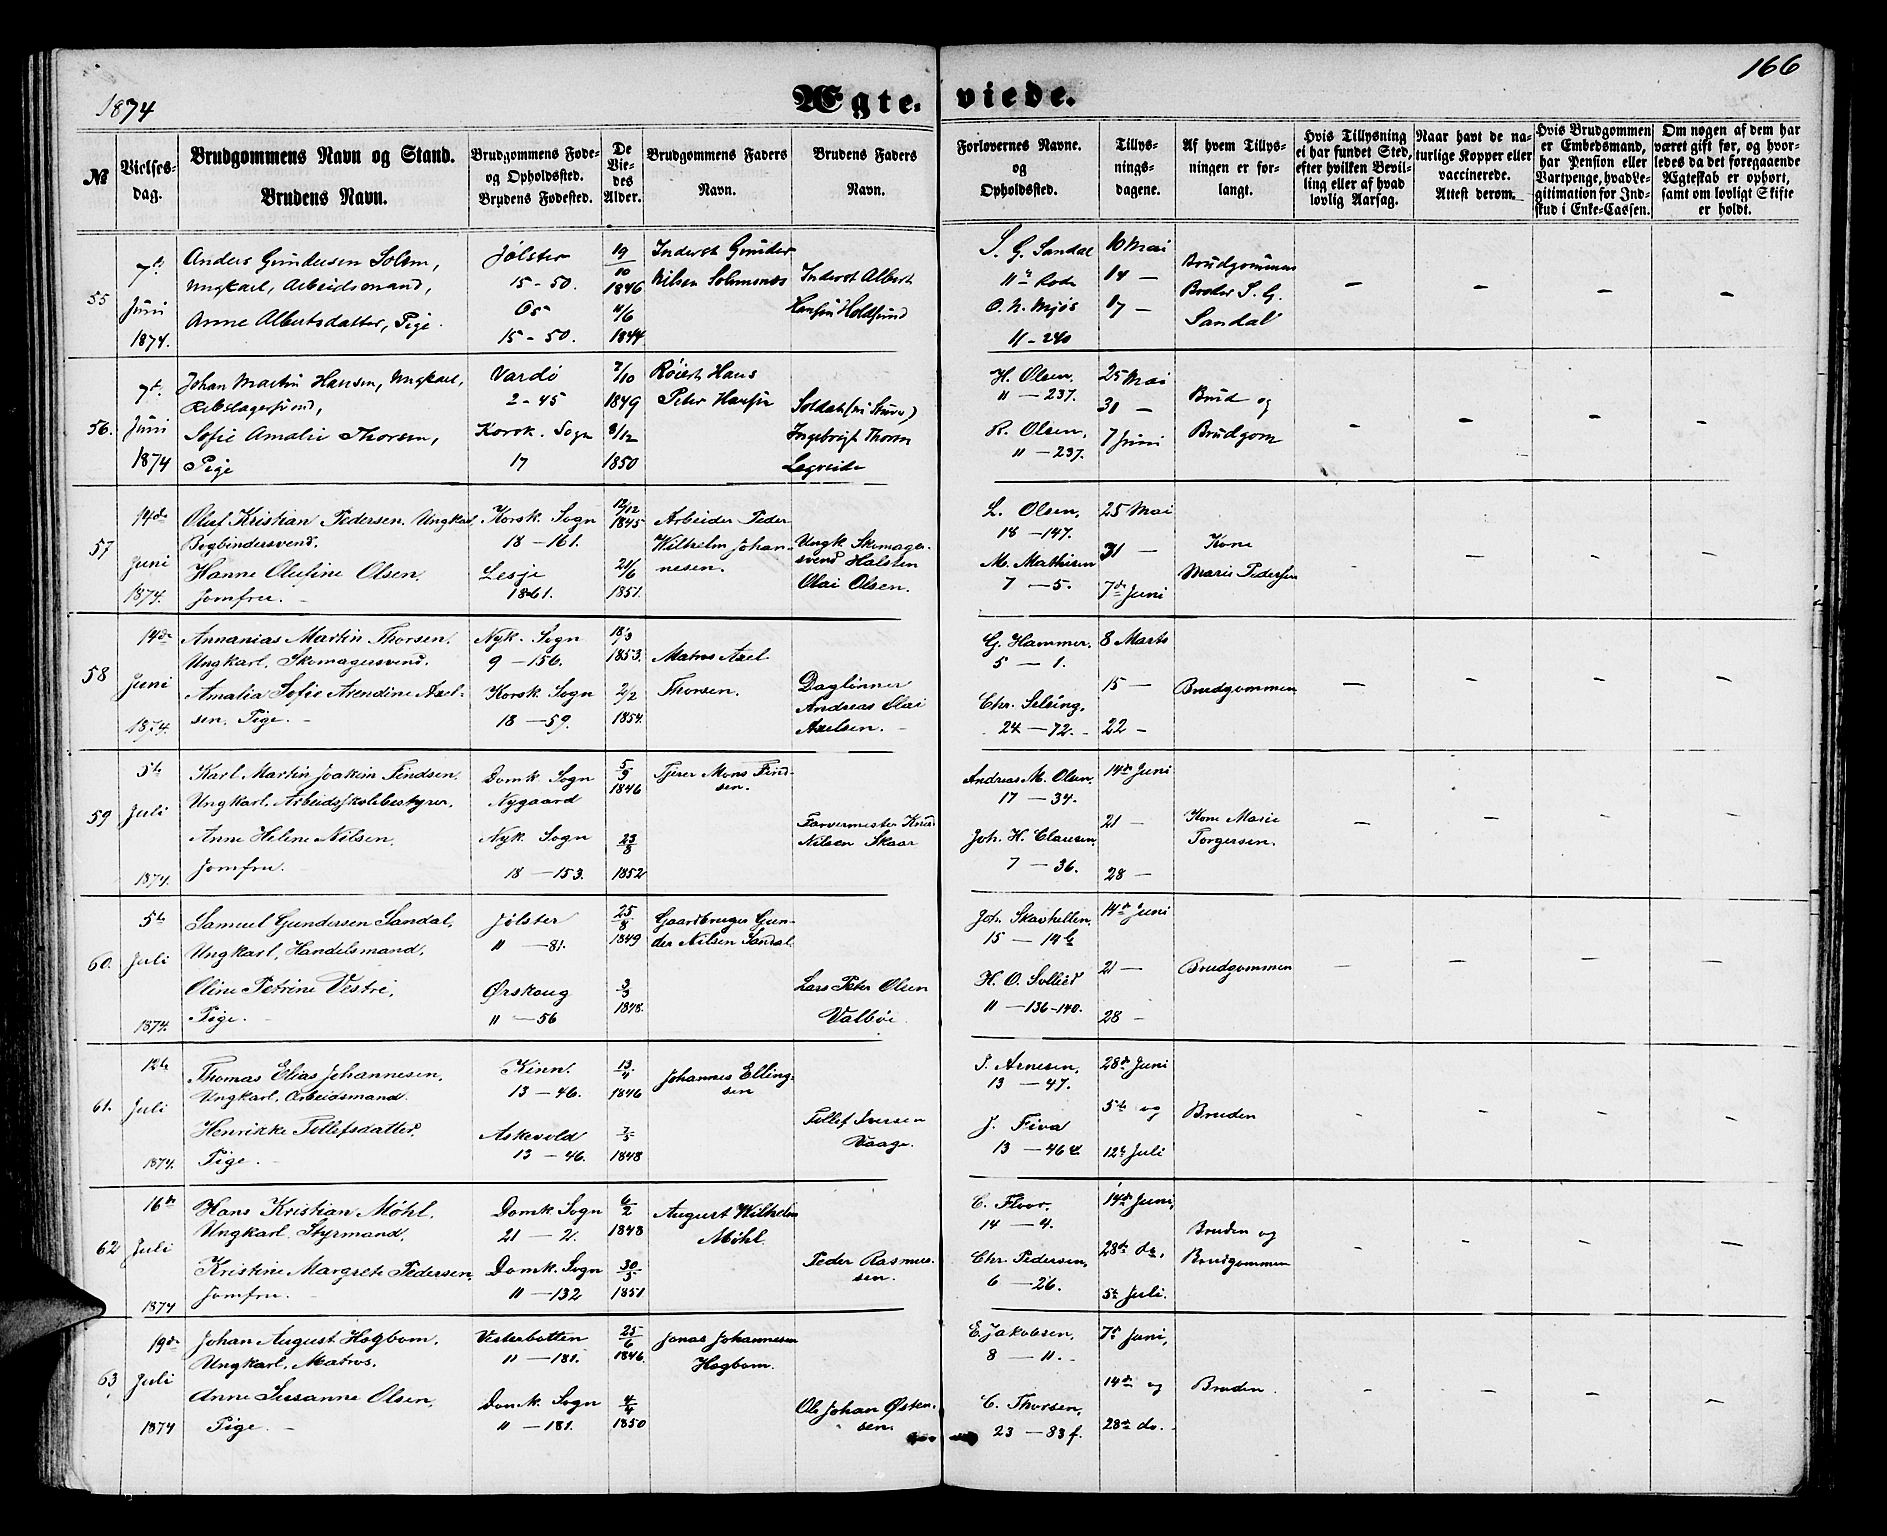 1874
166
Ægteviede.
№
Vielses-
dag.
Brudgommens Navn og Stand.
Brudens Navn.
Brudgommens Føde-
og Opholdssted.
Brudens Fødested.
De
Vie-
des
Alder.
Brudgommens Faders
Navn.
Brudens Faders
Navn.
Forlovernes Navne.
og
Opholdssted.
Tillys-
nings-
dagene.
Af hvem Tillys-
ningen er for-
langt.
Hvis Tillysning
ei har fundet Sted,
efter hvilken Bevil-
ling eller af hvad
lovlig Aarsag.
Naar havt de na-
turlige Kopper eller
vaccinerede.
Attest derom.
Hvis Brudgommen
er Embedsmand,
har Pension eller
Vartpenge, hvad Le-
gitimation for Ind-
skud i Enke-Cassen.
Om nogen af dem har
været gift før, og hvor-
ledes da det foregaaende
Ægteskab er ophørt,
samt om lovligt Skifte
er holdt.
55
7de
Juni
1874.
Anders Gundersen Solem,
Ungkarl, Arbeidsmand,
Anne Albertsdatter, Pige.
Jølster
15-50.
Os
15-50.
19/10
1846
11/6
1844
Inderst Gunder
Nilsen
Inderst Albert
Hansen Holdsund
S. G. Sandal
11 Rode
O. N. Mjøs
11-240
10 Mai
14 —
17 —
Brudgommens
Broder S. G.
Sandal
56.
7de
Juni
1874
Johan Martin Hansen, Ungkarl,
Rebslagersvend,
Sofie Amalie Thorsen,
Pige
Vardø
2-45
Korsk. Sogn
17
2/10
1849
8/12
1850
Røiert Hans
Peter Hansen
Soldat
Ingebrigt Thorsen
Legreide
H. Olsen.
11 — 237.
R. Olsen,
11 — 237.
25 Mai
31 —
7 Juni
Brud og
Brudgom
57
14de
Juni
1874.
Oluf Kristian Pedersen. Ungkarl,
Bogbindersvend.
Hanne Olufine Olsen.
Jomfru. —
Korsk. Sogn
18-161.
Lesje
18-61.
12/12
1845
21/6
1851.
Arbeider Peder
Wilhelm Johan-
nesen.
Ungk. Skomager-
svend Halsten
Olai Olsen.
L. Olsen,
18 — 147.
M. Mathisen
7 — 5.
25 Mai
31 —
7de Juni
Kone
Marie Pedersen
58
14de
Juni
1874.
Annanias Martin Thorsen.
Ungkarl. Skomagersvend.
Amalia Sofie Arendine Axel-
sen. Pige. —
Nyk. Sogn
9 — 156.
Korsk. Sogn
18 — 59.
18/3
1853.
2/2
1854.
Matros Axel
Thorsen.
Daglønner
Andreas Olai
Axelsen. —
G. Hammer.
5 — 1.
Chr. Selsing.
24 — 72. —
8 Marts
15 —
22 —
Brudgommen
59
5te
Juli
1874.
Karl Martin Joakim Findsen.
Ungkarl. Arbeidsskolebestyrer.
Anne Helene Nilsen.
Jomfru.
Domk. Sogn
Nygaard
Nyk. Sogn
18 — 153.
5/9
1846
23/8
1852
Tjener Mons Find-
sen.
Farvermester Knud
Nilsen Skaar
Andreas M. Olsen.
17 — 34.
Joh. H. Clausen.
7 — 36.
14de Juni
21 —
28 —
Kone Marie
Torgersen.
60.
5te
Juli
1874.
Samuel Gundersen Sandal.
Ungkarl, Handelsmand,
Oline Petrine Vestre,
Pige. —
Jølster
11 — 81.
Ørskoug
11 — 56
25/8
1849
3/3
1848.
Gaardbruger Gun-
der Nilsen Sandal
Lars Peter Olsen
Valbøe.
Joh. Skavhellen,
15 — 14b
H. O. Sollied
11 — 136-140.
14de Juni
21 —
28 —
Brudgommen
61.
12te
Juli
1874.
Thomas Elias Johannesen,
Ungkarl, Arbeidsmand.
Henrikke Tollefsdatter.
Pige. —
Kinn.
13 — 46.
Askevold
13 — 46.
13/4
1846
7/5
1848
Johannes Elling-
sen
Tollef Iversen
Vaage.
I. Arnesen,
13 — 47.
J. Fiva
13 — 46 d.
28de Juni
5te og
12te Juli
Bruden
62
16de
Juli
1874
Hans Kristian Møhl.
Ungkarl. Styrmand.
Kristine Margrete Pedersen
Jomfru. —
Domk. Sogn
21 — 2.
Domk. Sogn
11 — 132
6/2
1848
30/5
1851
August Wilhelm
Møhl.
Peder Rasmus-
sen.
C. Floor.
14 — 4.
Chr. Pedersen,
6 — 26.
14de Juni,
28de do,
5te Juli.
Bruden og
Brudgommen
63
19de
Juli
1874
Johan August Hogbom.
Ungkarl. Matros.
Anne Susanne Olsen,
Pige. —
Vesterbotten
11 — 181.
Domk. Sogn
11 — 181.
25/6
1846.
4/4
1850
Jonas Johannesen
Hogbom.
Ole Johan Østen-
sen.
E. Jakobsen.
8 — 11. —
C. Thorsen,
23 — 83 f.
7de Juni,
14de og
28de do.
Bruden.